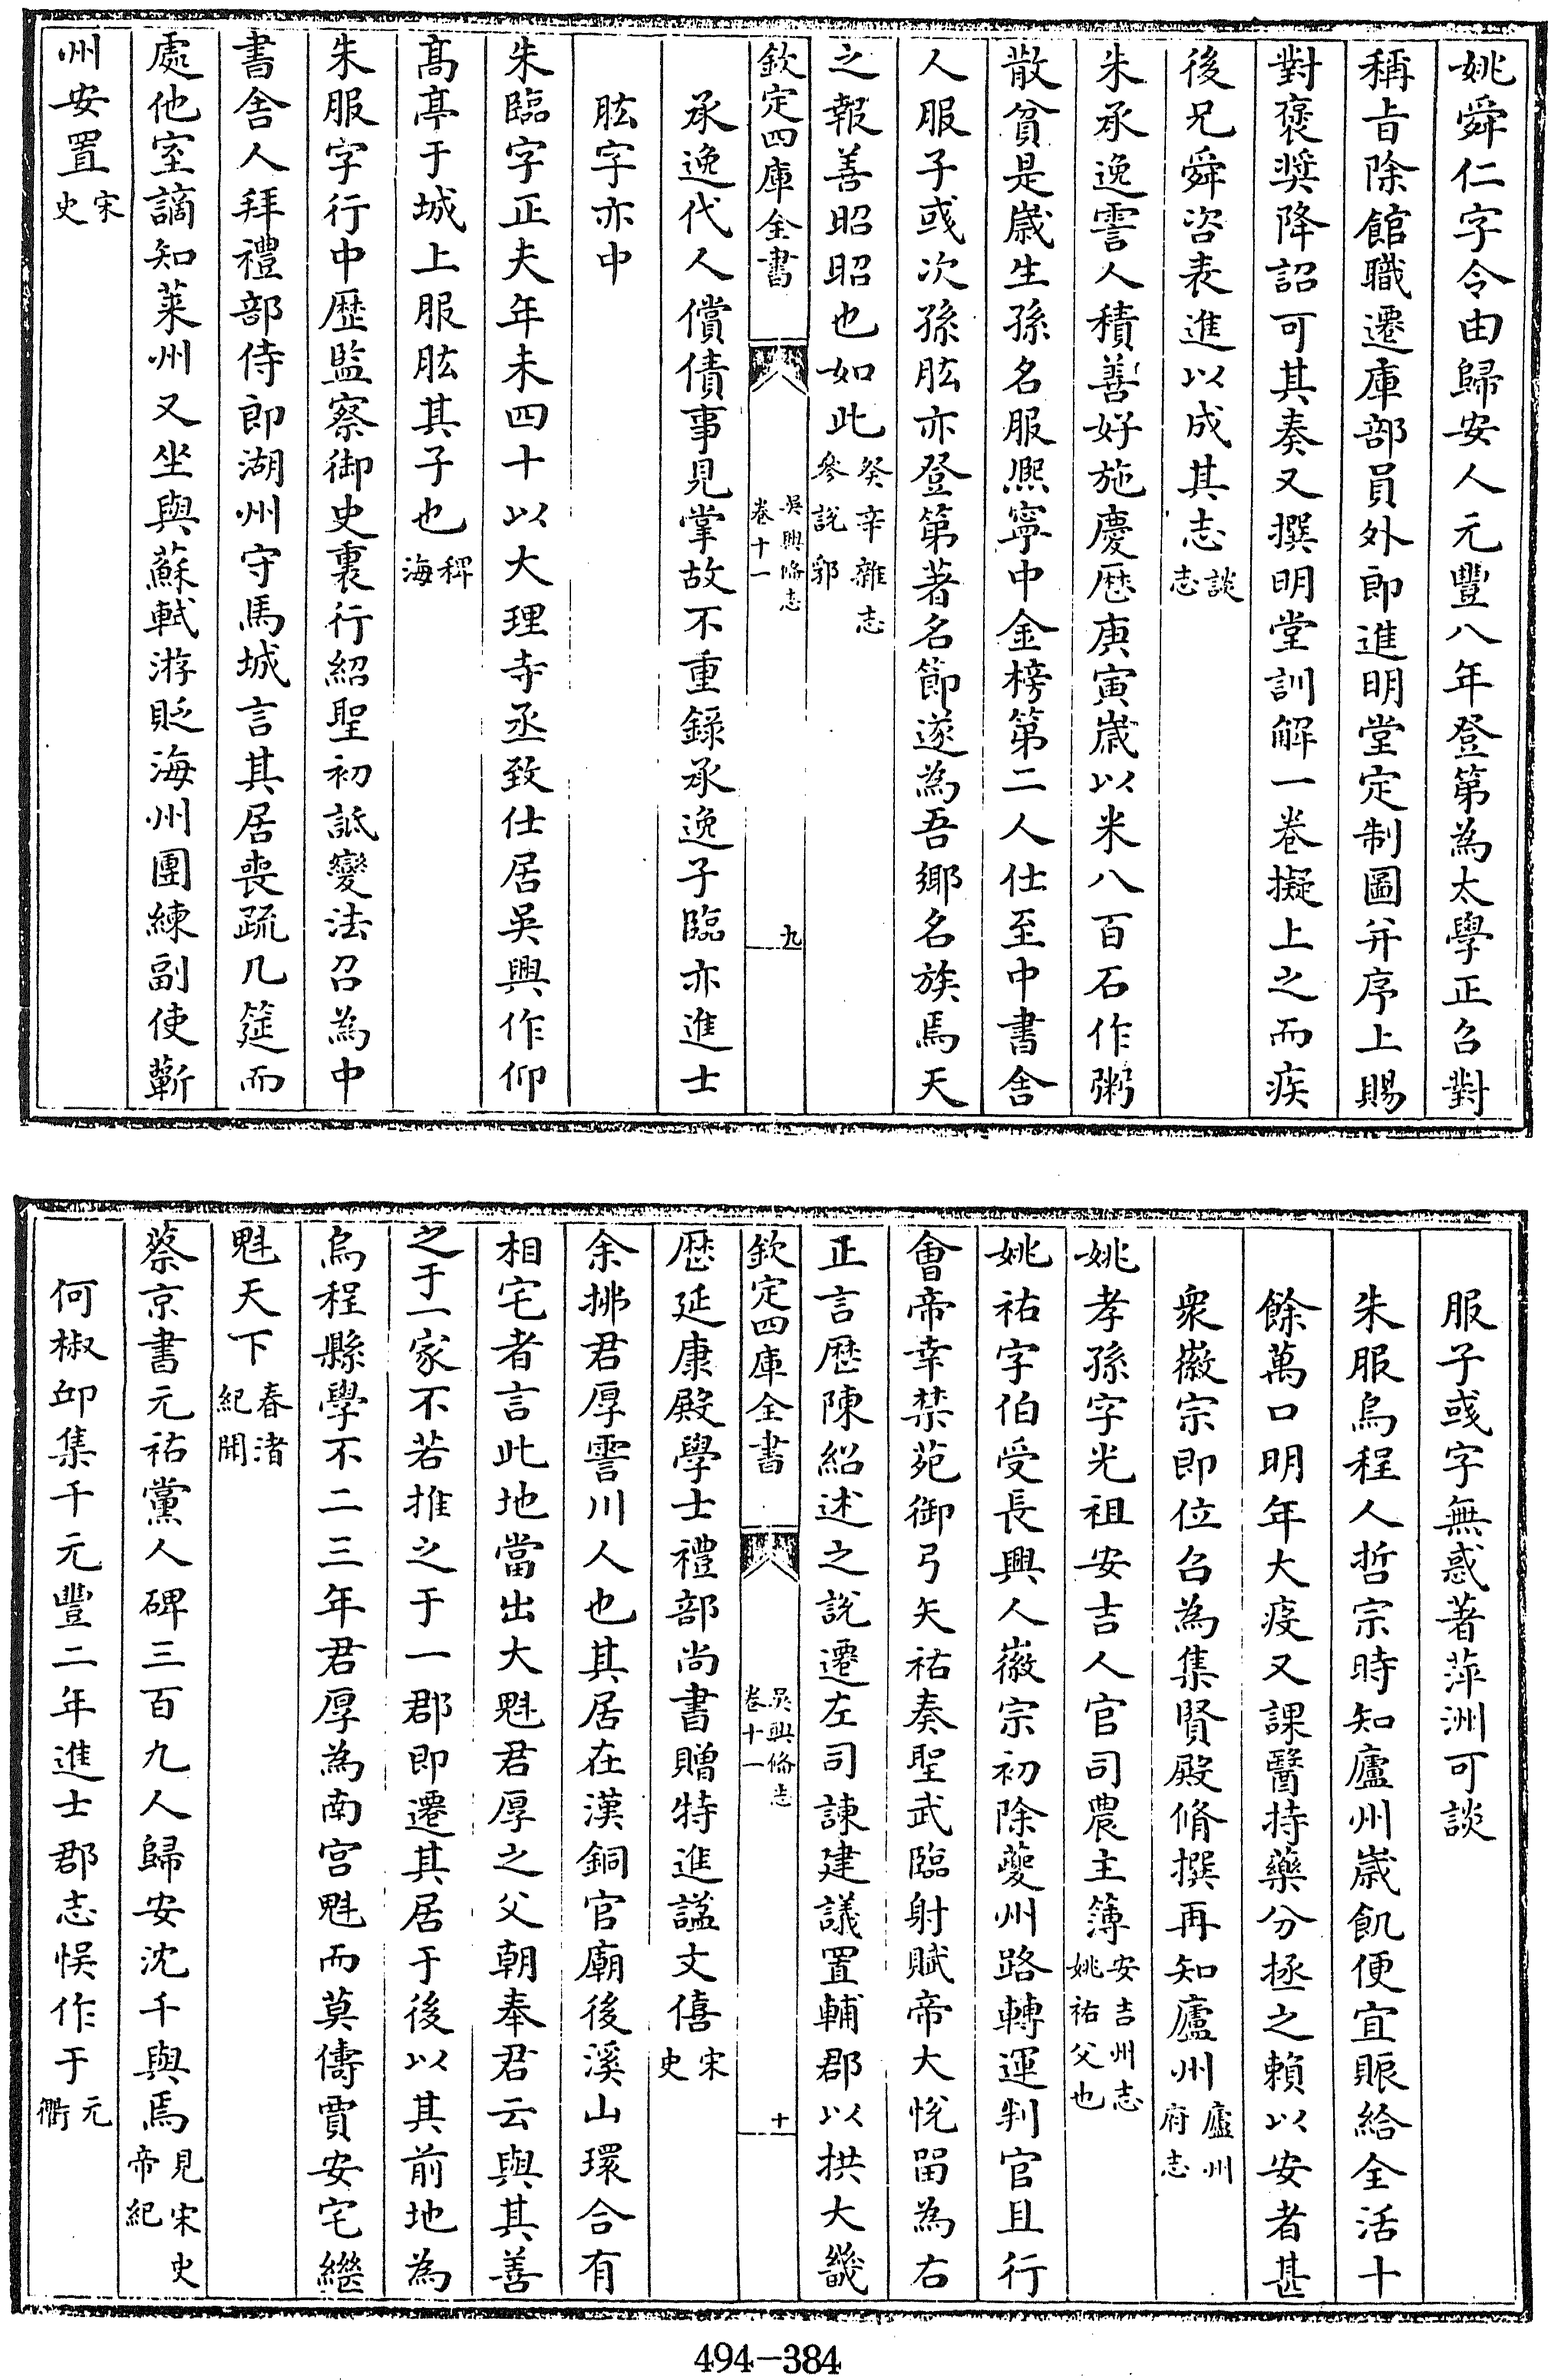 姚舜仁字令由歸安人元豐八年登第為太學正召對
稱旨除館職遷庫部員外郎進明堂定制圖并序上賜
對褒奨降詔可其奏又撰明堂訓解一卷擬上之而疾
後兄舜咨表進以成其志談志
朱承逸霅人積善好施慶歴庚寅歲以米八百石作粥
散貧是歲生孫名服熈寧中金榜第二人仕至中書舍
人服子彧次孫肱亦登第著名節遂為吾鄉名族焉天
之報善昭昭也如此癸辛雜志參說郛
欽定四庫全書
吳興備志
卷十一
九
承逸代人償債事見掌故不重錄承逸子臨亦進士
肱字亦中
朱臨字正夫年未四十以大理寺丞致仕居吳興作仰
髙亭于城上服肱其子也稗海
朱服字行中歴監察御史裏行紹聖初詆變法召為中
書舍人拜禮部侍郎湖州守馬城言其居喪疏几筵而
處他室謫知萊州又坐與蘇軾游貶海州團練副使蘄
州安置宋史
服子彧字無惑著萍洲可談
朱服烏程人哲宗時知廬州歲飢便宜賑給全活十
餘萬口明年大疫又課醫持藥分拯之賴以安者甚
衆徽宗即位召為集賢殿脩撰再知廬州廬州府志
姚孝孫字光祖安吉人官司農主簿安吉州志姚祐父也
姚祐字伯受長興人徽宗初除夔州路轉運判官且行
會帝幸禁苑御弓矢祐奏聖武臨射賦帝大悅留為右
正言歴陳紹述之說遷左司諫建議置輔郡以拱大畿
欽定四庫全書
吳興備志
卷十一
十
歴延康殿學士禮部尚書贈特進諡文僖宋史
余拂君厚霅川人也其居在漢銅官廟後溪山環合有
相宅者言此地當出大魁君厚之父朝奉君云與其善
之于一家不若推之于一郡即遷其居于後以其前地為
烏程縣學不二三年君厚為南宫魁而莫儔賈安宅繼
魁天下春渚紀聞
蔡京書元祐黨人碑三百九人歸安沈千與焉見宋史帝紀
何椒邱集千元豐二年進士郡志悮作于元衢
494-384